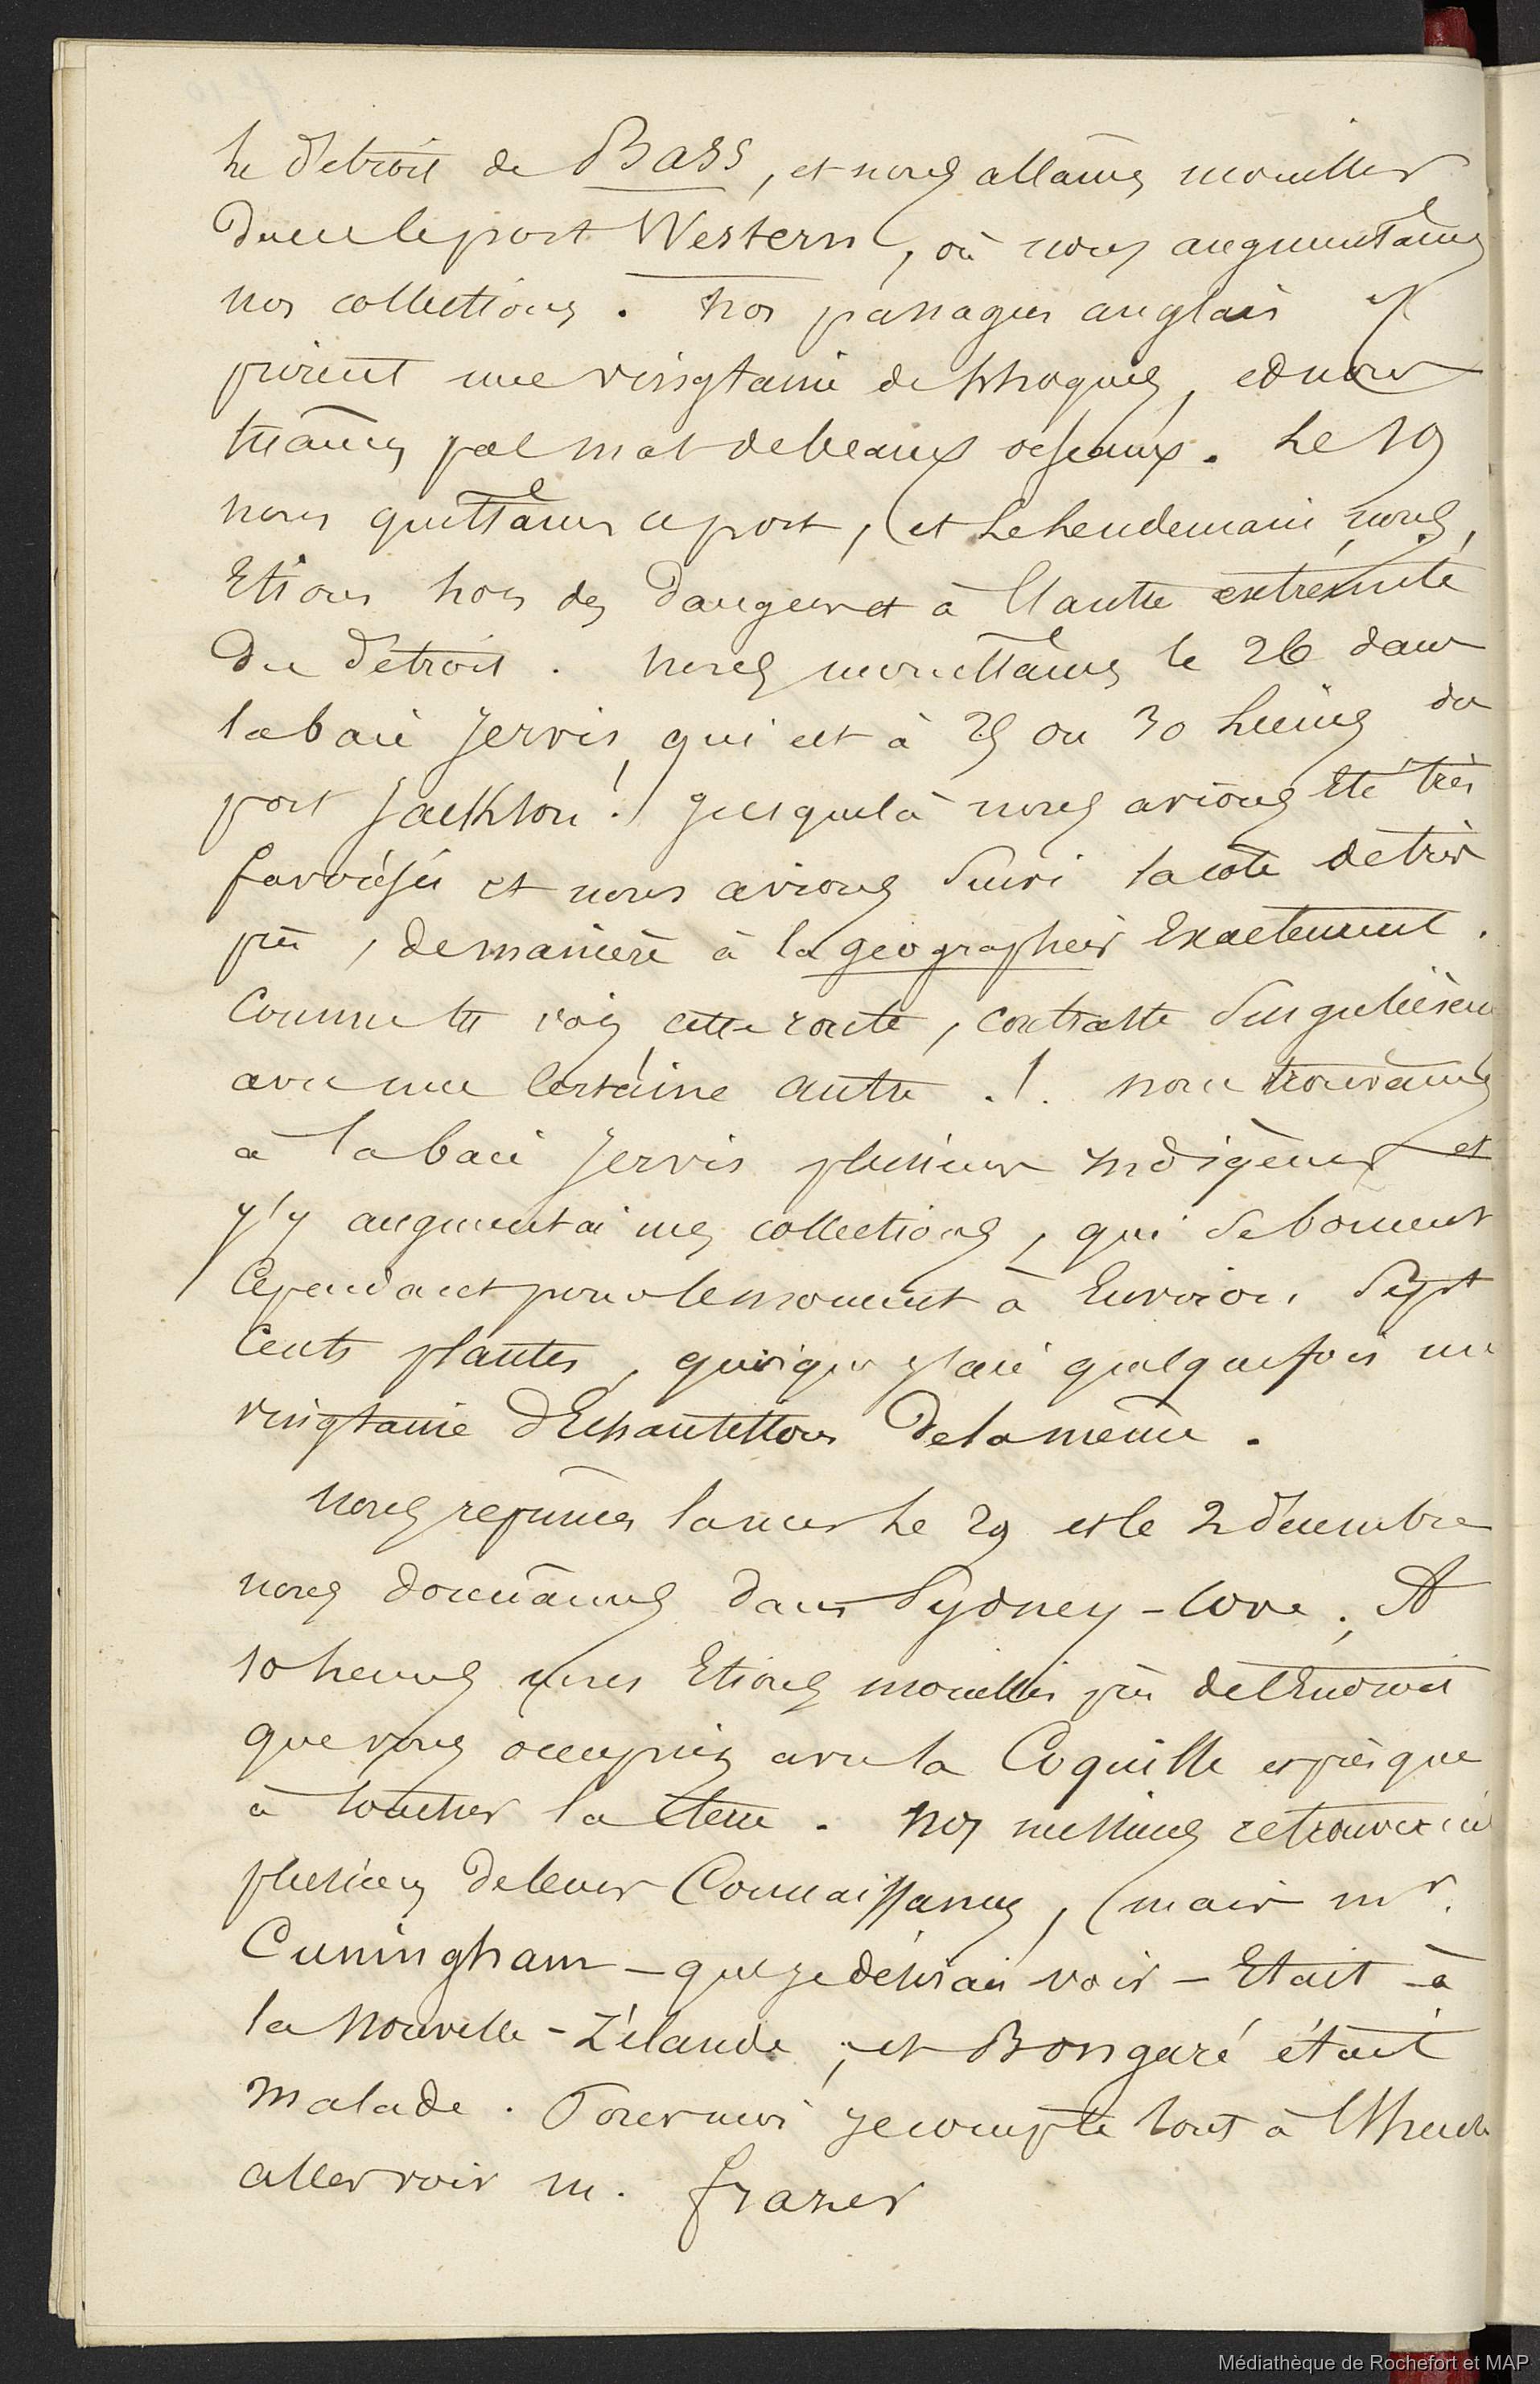 le détroit de Bass, et nous allâmes mouiller
dans le port Western, où nous augmentâmes
nos collections. Nos passagers anglais y
prirent une vingtaine de phoques, et nous
tuâmes pas mal de beaux oiseaux. Le 19
nous quittâmes ce port, et le lendemain nous
Etions hors des dangers et à l'autre extrémité
du détroit. Nous mouillâmes le 26 dans
la baie Jervis, qui est à 25 ou 30 lieues du
port Jackson! Jusque là nous avions été très
favorisés et nous avions suivi la côte de très
près, de manière à la géographier Exactement.
Comme tu vois cette route, contraste singulièrem
avec une certaine autre.!. Nous trouvâmes
à la baie Jervis plusieurs indigènes et
j'y augmentai mes collections, qui se bornent
cependant pour le moment à Environ Sept
Cents plantes, quoique j'aie quelquefois une
vingtaine d'Echantillons de la même.
Nous reprîmes la mer le 29 et le 2 décembre
nous donnâmes dans Sydney-Cove. A
10 heures nous Etions mouillés près de l'Endroit
que vous occupiez avec la Coquille et presque
à toucher la terre. Nos messieurs retrouvèr ici
plusieurs de leurs Connaissances, mais mr.
Cuningham - que je désirais voir - Etait à
la Nouvelle-Zélande, et Bongaré était
malade. Pour moi je compte tout à l'heure
aller voir m. frazer
Médiathèque de Rochefort et MAP